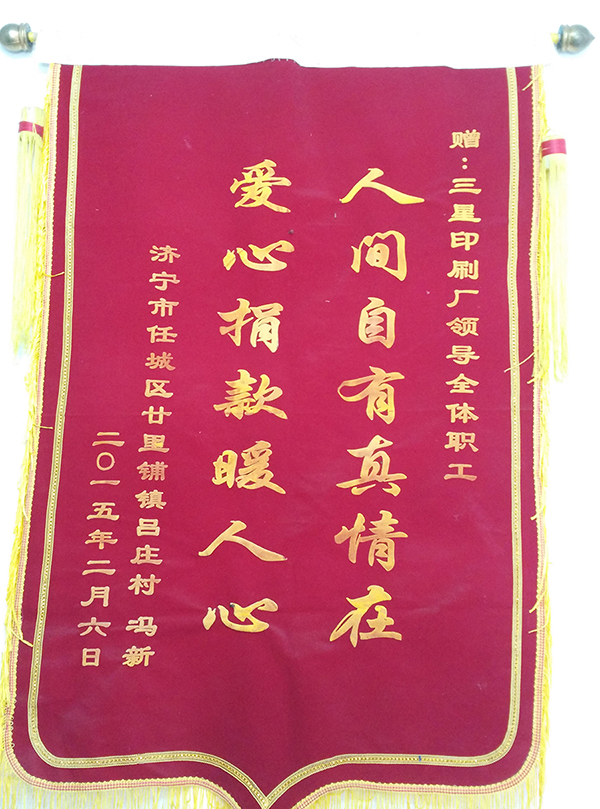 赠：三星印刷厂领导全体职工
人间自有真情在
爱心捐款暖人心
济宁市任城区廿里铺镇吕庄村 冯新
二〇一五年二月六日